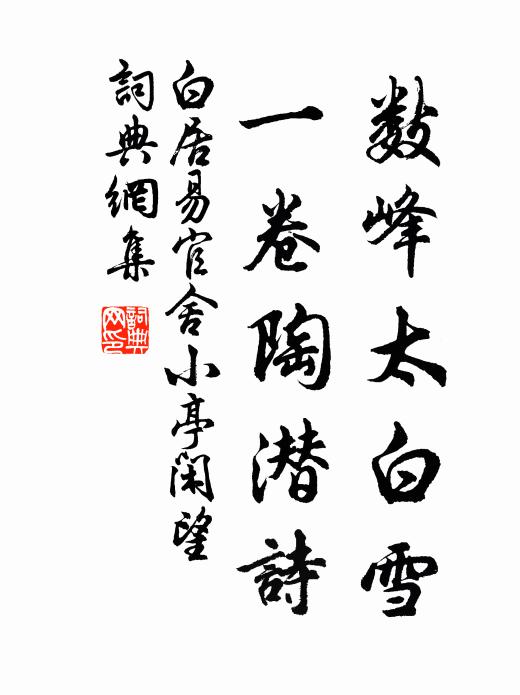 數峰太白雪
一卷陶潛詩
白居易官舍小亭閑望
詞典網集
詞典
网印